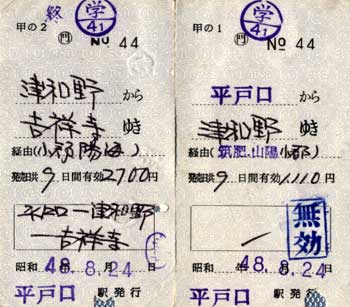 甲の2
終
学
41
門
No 44
津和野 から
吉祥寺 ゆき
経由(小郡陽海)
発売日共 9 日間有効 2700円
平戸口―津和野
―吉祥寺
昭和 48.8.24 日
平戸口 駅発行
甲の1
学
41
門
No 44
平戸口 から
津和野 ゆき
経由(筑肥.山陽小郡)
発売日共 9 日間有効 1110円
無効
昭和 年 48.8.24 日
平戸口 駅発行